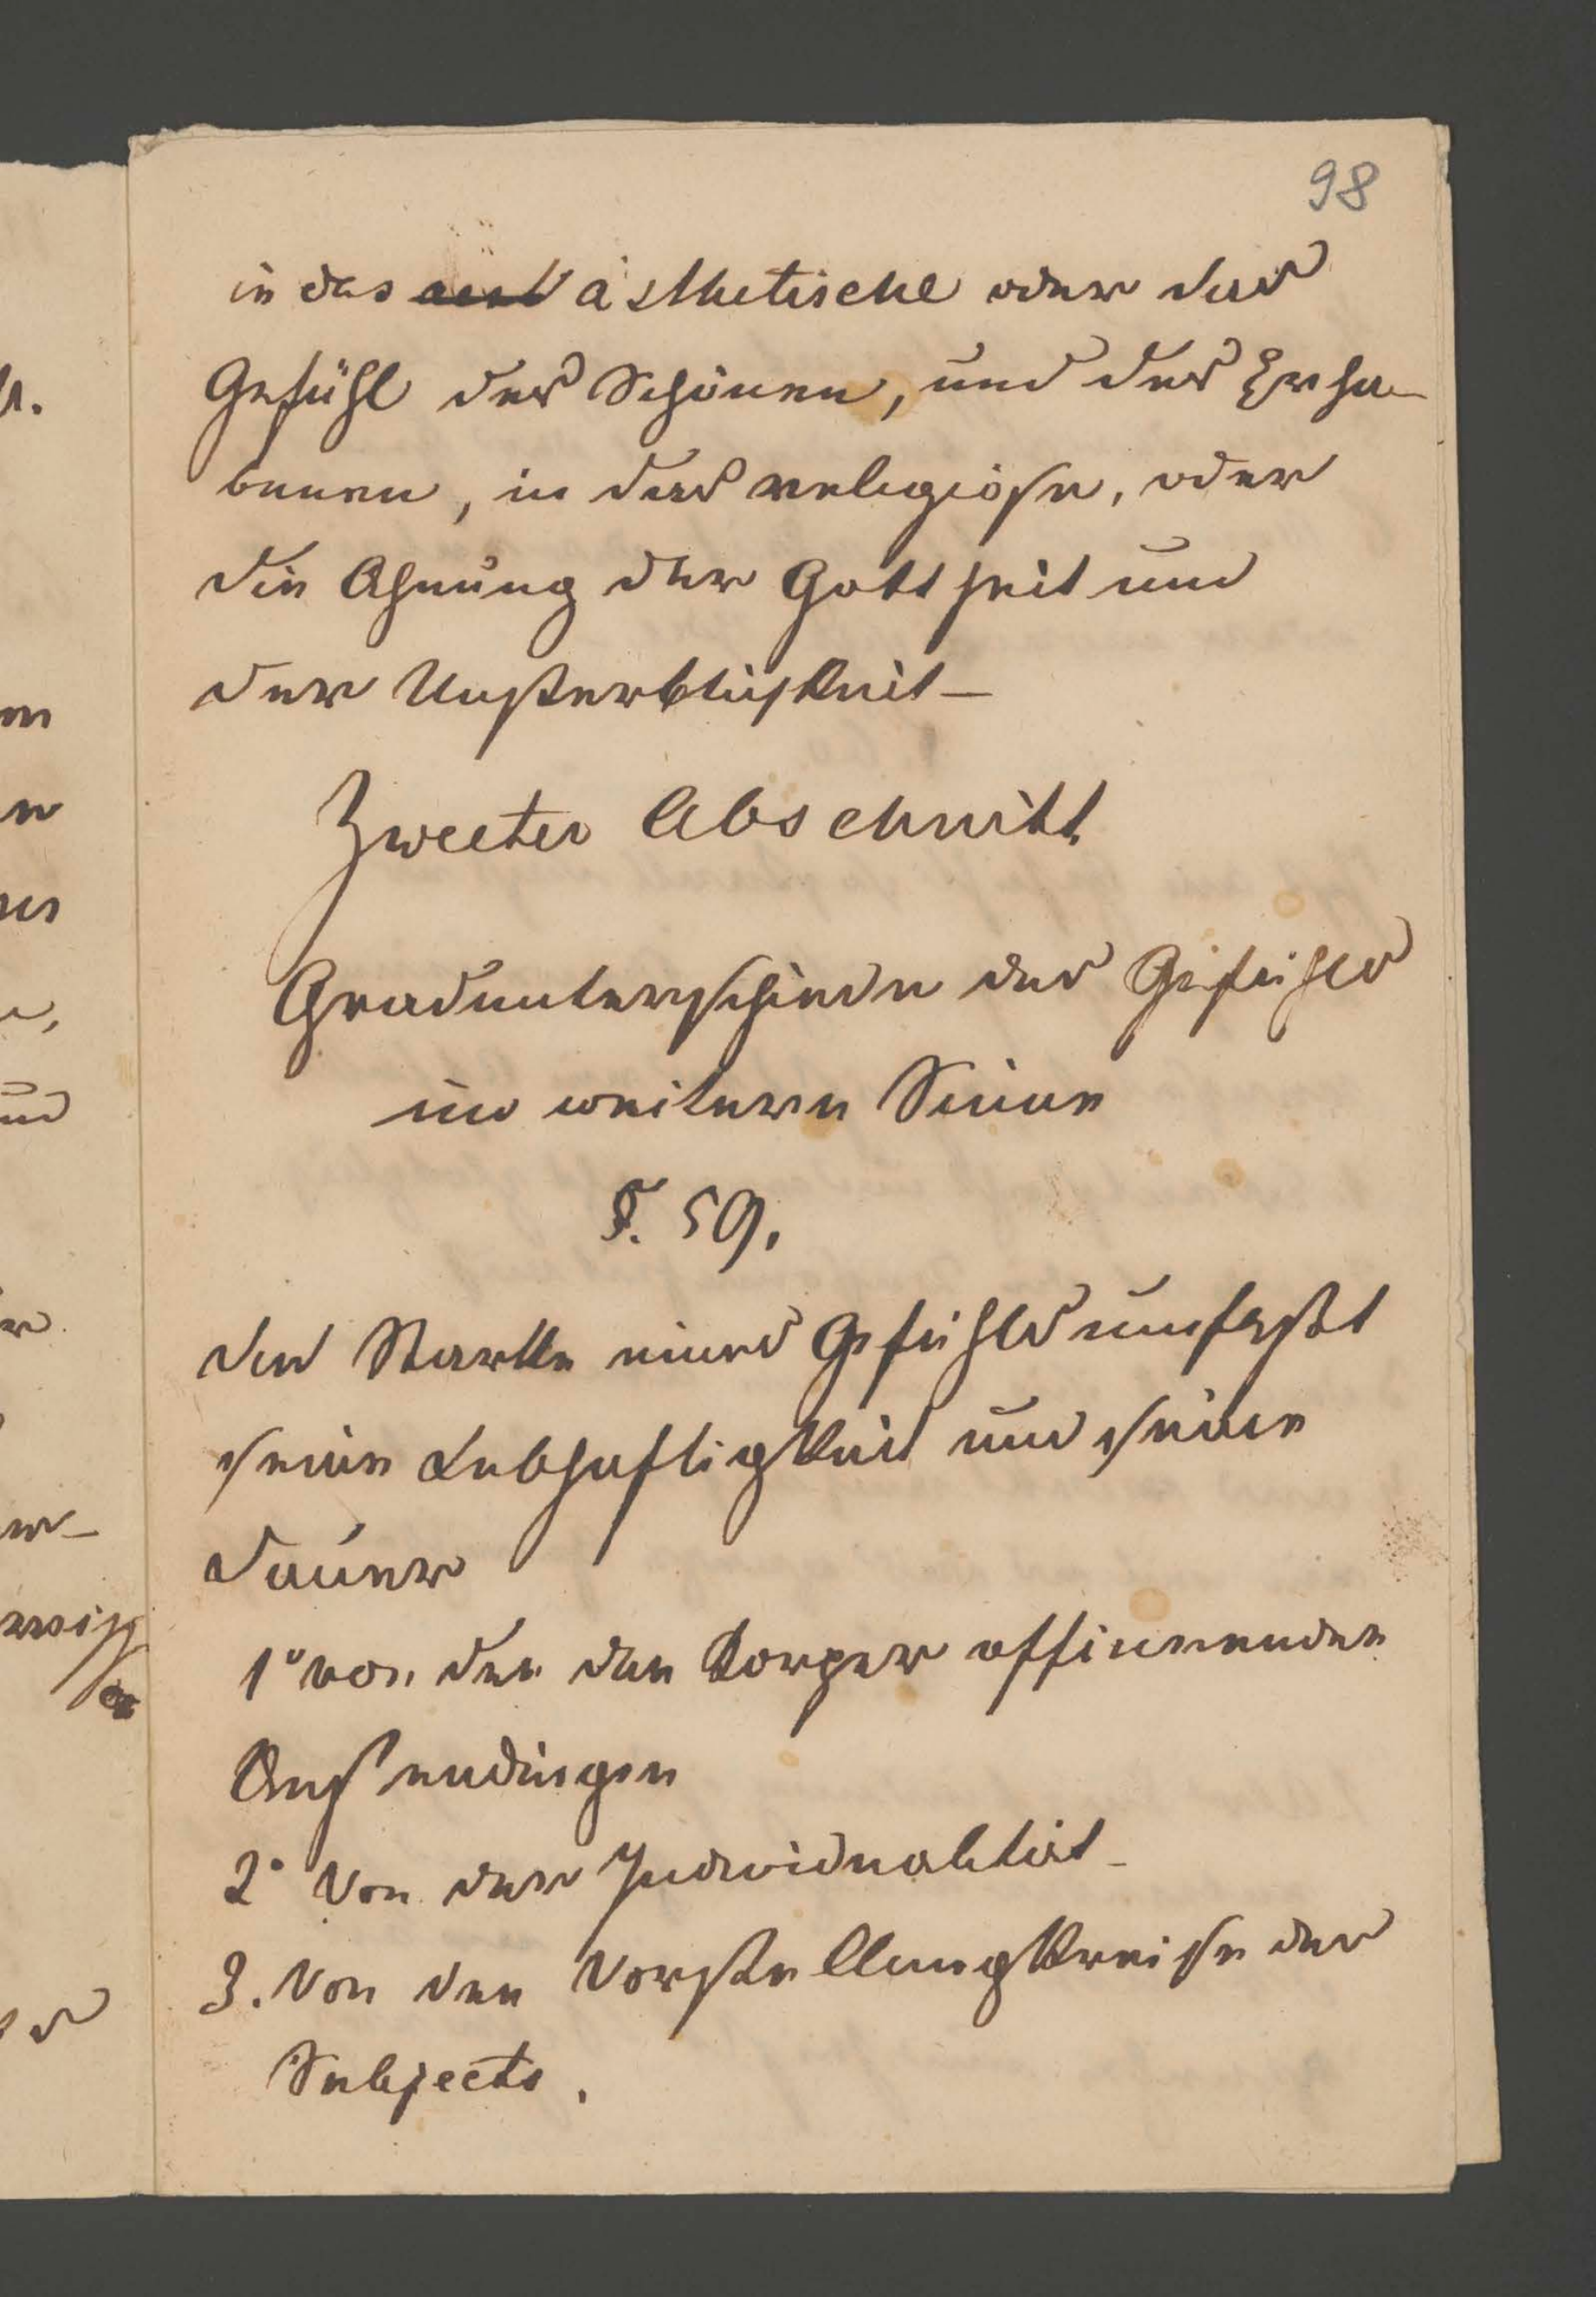 98
in das ästhetische oder das
Gefühl des Schönen, und des Erha-
benen, in das religiöse, oder
die Ahnung der Gottheit und
der Unsterblichkeit_
Zweeter Abschnitt
Gradunterschiede des Gefühls
im weitern Sinne
§. 59.
der Starke eines Gefühls umfasst
seine Lebhaftigkeit und seine
dauer
1° von den den Korper afficirenden
Aussendingen
2° Von der Individualität_
3. Von den Vorstellungkreise des
Subjects.